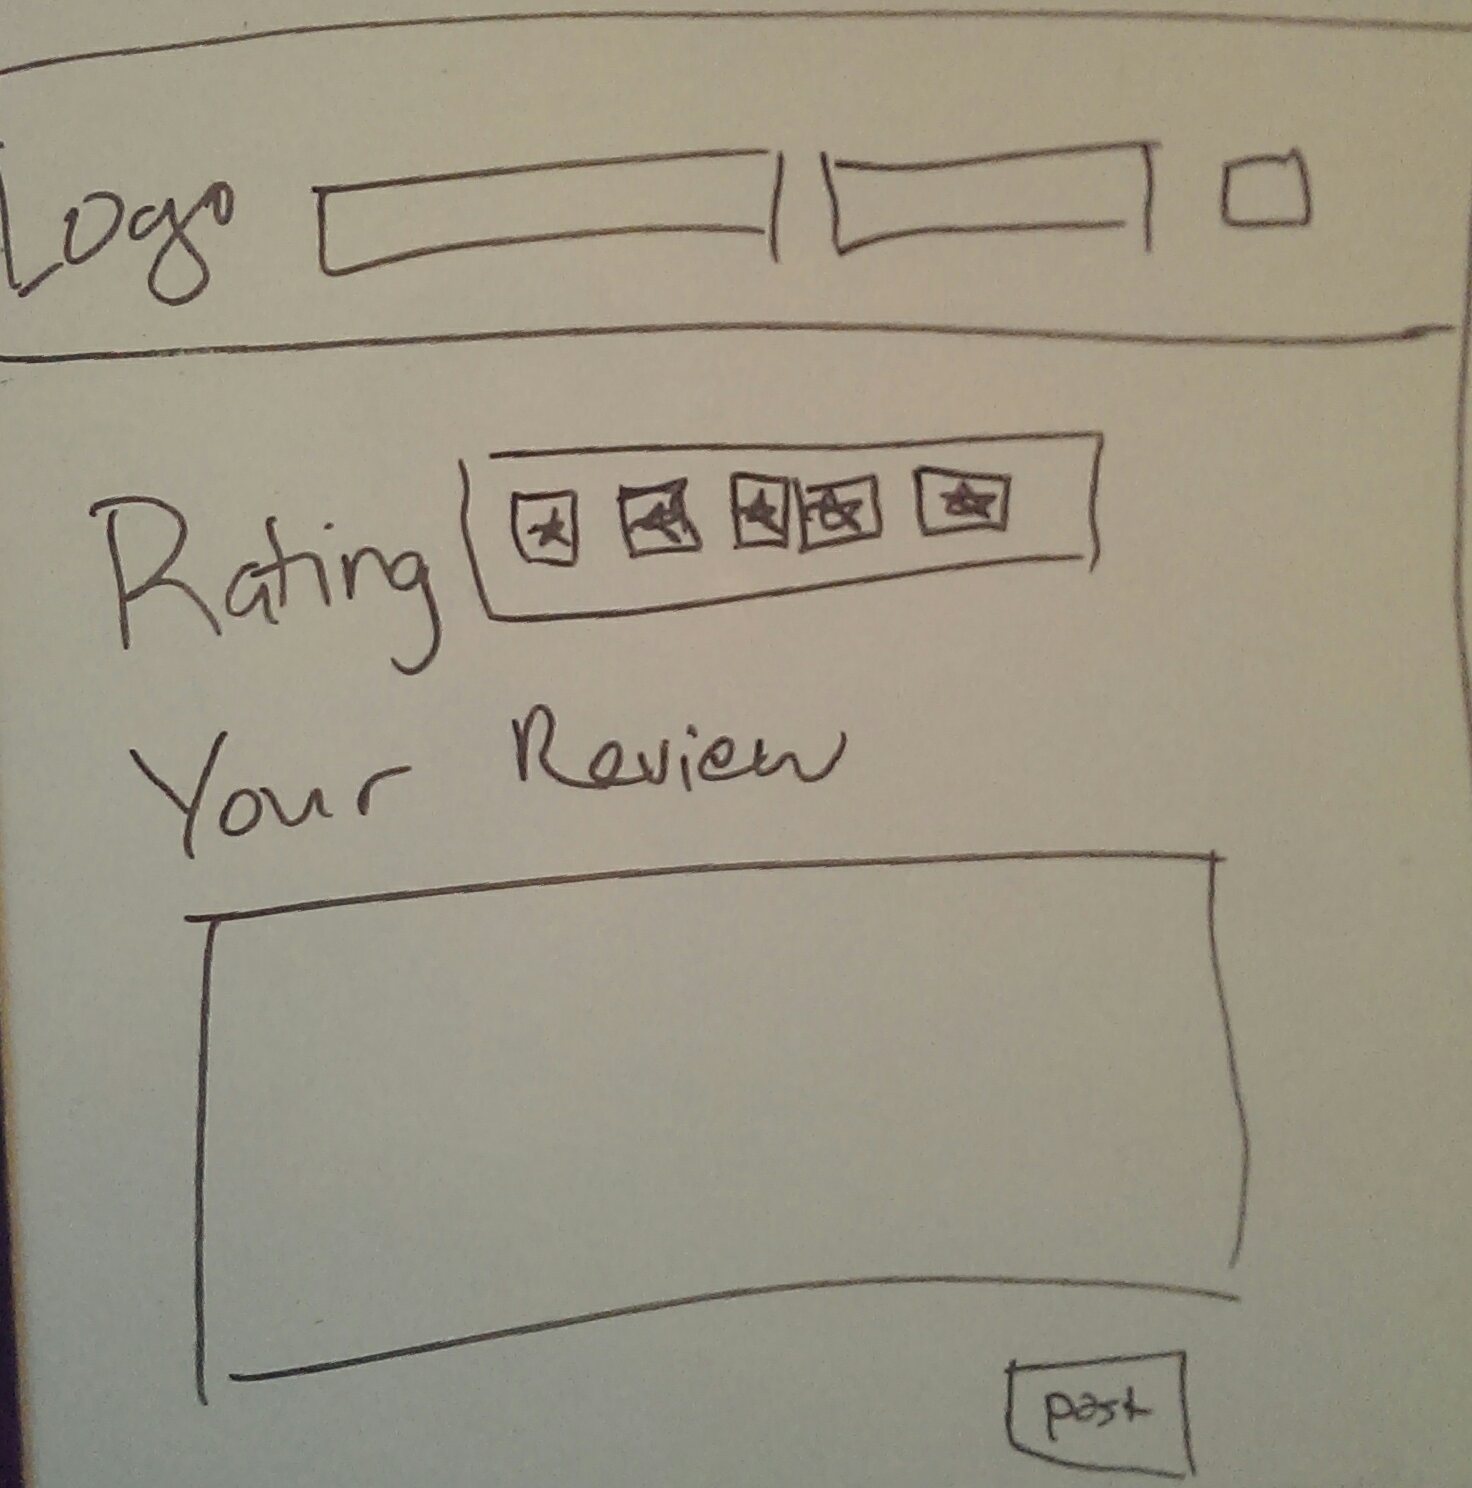 Logo
Rating
Your Review
post